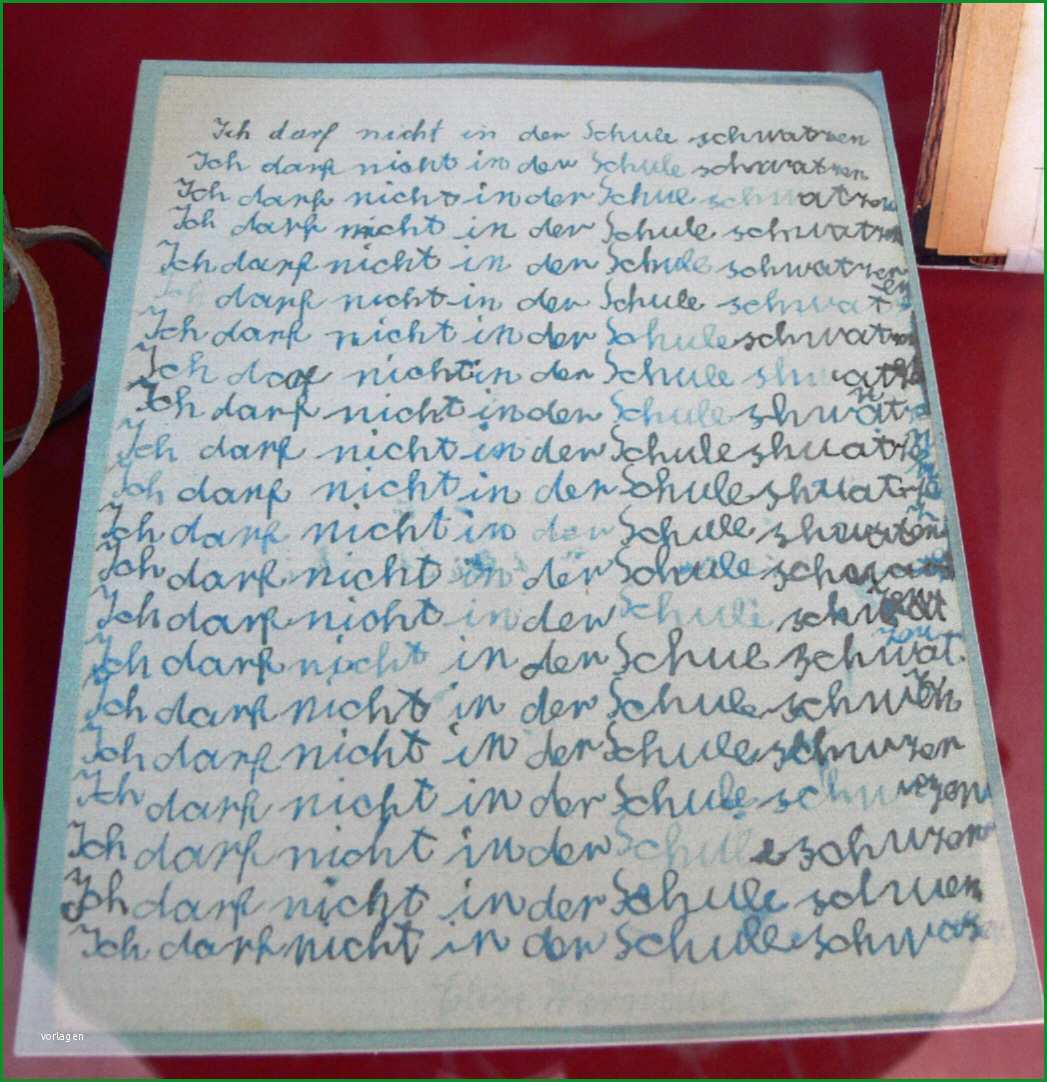 Ich darf nicht in der Schule schwatzen
Ich darf nicht in der Schule schwatzen
Ich darf nicht in der Schule schwatzen
Ich darf nicht in der Schule schwatzen
Ich darf nicht in der Schule schwatzen
Ich darf nicht in der Schule schwatzen
Ich darf nicht in der Schule schwatzen
Ich darf nicht in der Schule shwatzen
Ich darf nicht in der Schule shwatzen
Ich darf nicht in der Schule shuatzen
Ich darf nicht in der Schule shuatzen
Ich darf nicht in der Schule shwatzen
Ich darf nicht in der Schule schwatzen
Ich darf nicht in der Schule schwatzen
Ich darf nicht in der Schule schwatzen
Ich darf nicht in der Schule
Ich darf nicht in der Schule schwzen
Ich darf nicht in der Schule
Ich darf nicht in der Schule schwzen
Ich darf nicht in der Schule
Ich darf nicht in der Schule
vorlagen